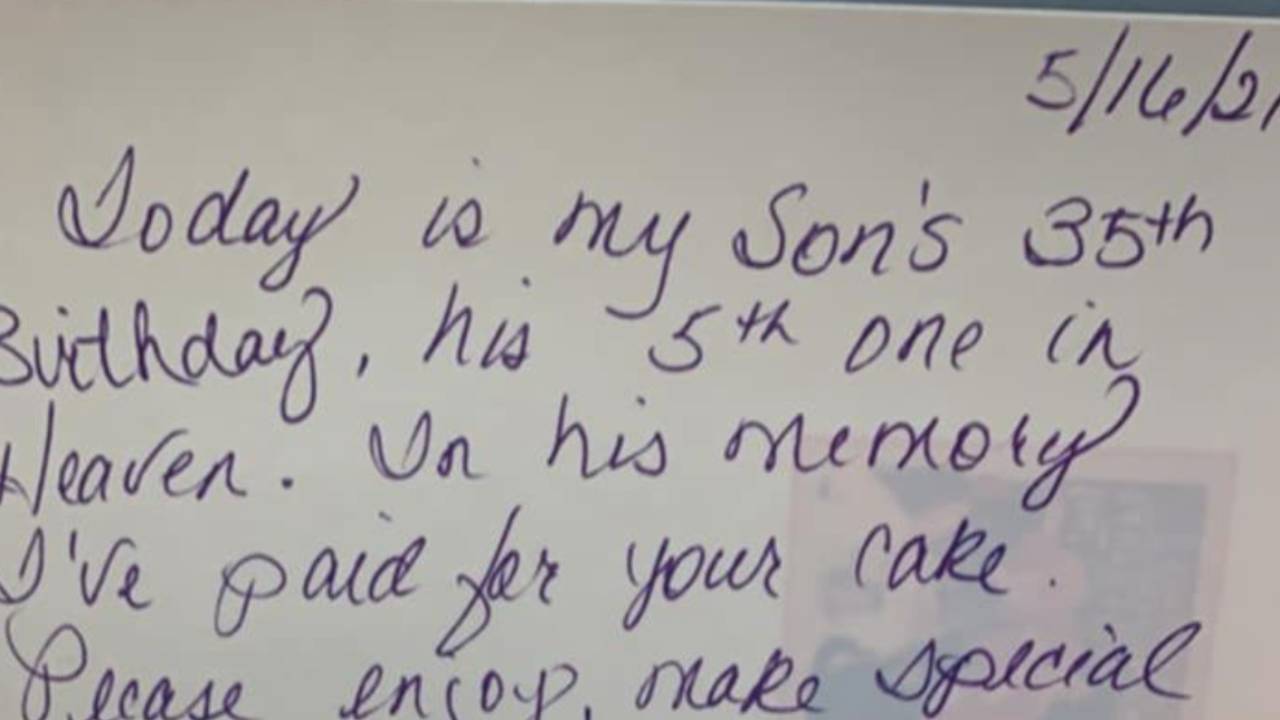 5/16/21
Today is my Son's 35th
Birthday, his 5th one in
Heaven. In his memory
I've paid for your cake.
Please enjoy, make special